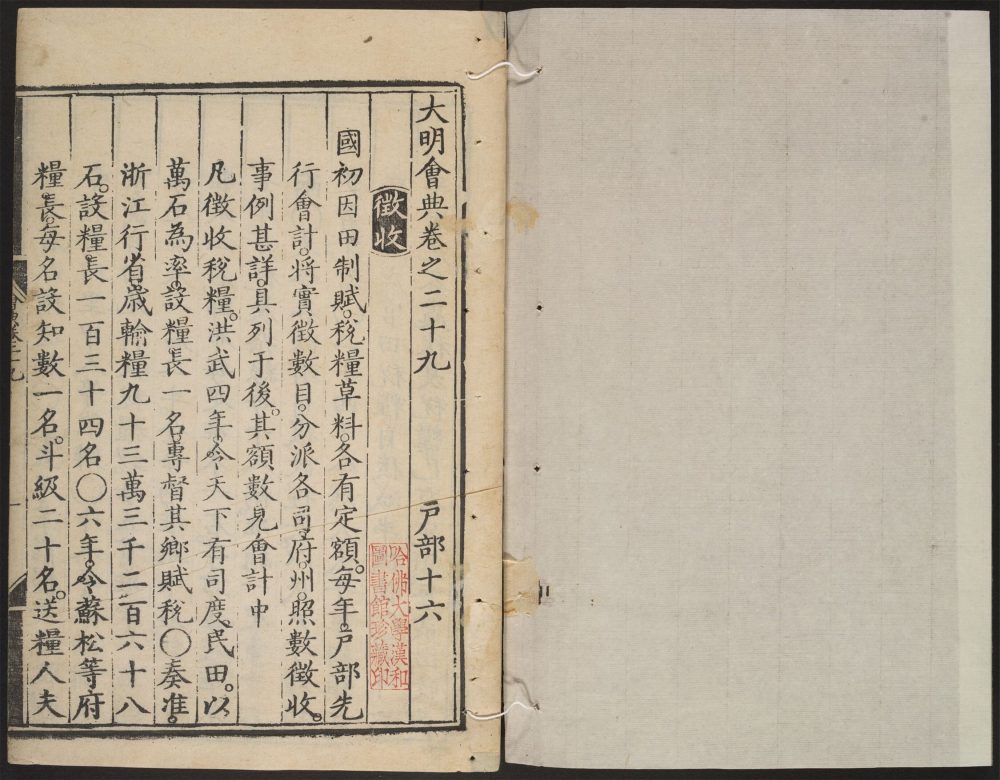 大明會典卷之二十九 戶部十六
徵收
國初因田制賦。稅糧草料。各有定額。每年。戶部先
行會計。將實徵數目。分派各司府。州。照數徵收。
事例甚詳。具列于後。其額數見會計中
凡徵收稅糧。洪武四年。令天下有司度民田。以
萬石為率。設糧長一名。專督其鄉賦稅○奏准。
浙江行省。歲輸糧九十三萬三千二百六十八
石。設糧長一百三十四名○六年。令蘇松等府
糧長。每名設知數一名。斗級二十名。送糧人夫
哈佛大學漢和
圖書館珍藏印